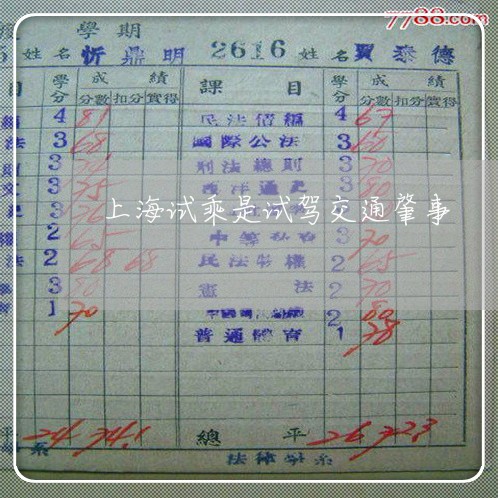 7788.com
學期
姓名 忻鼎明 2616 姓名 賈泰德
目 學分 成績 課目 學分 成績
分數 扣分 實得 分數 扣分 實得
4 81 民法債編 4 67
法 3 68 國際公法 3 60
3 刑法總則 3 70
3 75 西洋通史 3 80
3 76 3
上海试乘是试驾交通肇事
2 65 3 70
法 2 68 68 民法物權 2 65
3 80 憲法 2 70
育 1 70 2 80
普通體育 1 78
平 24 74.1 總平 26 72.3
系 法律學系